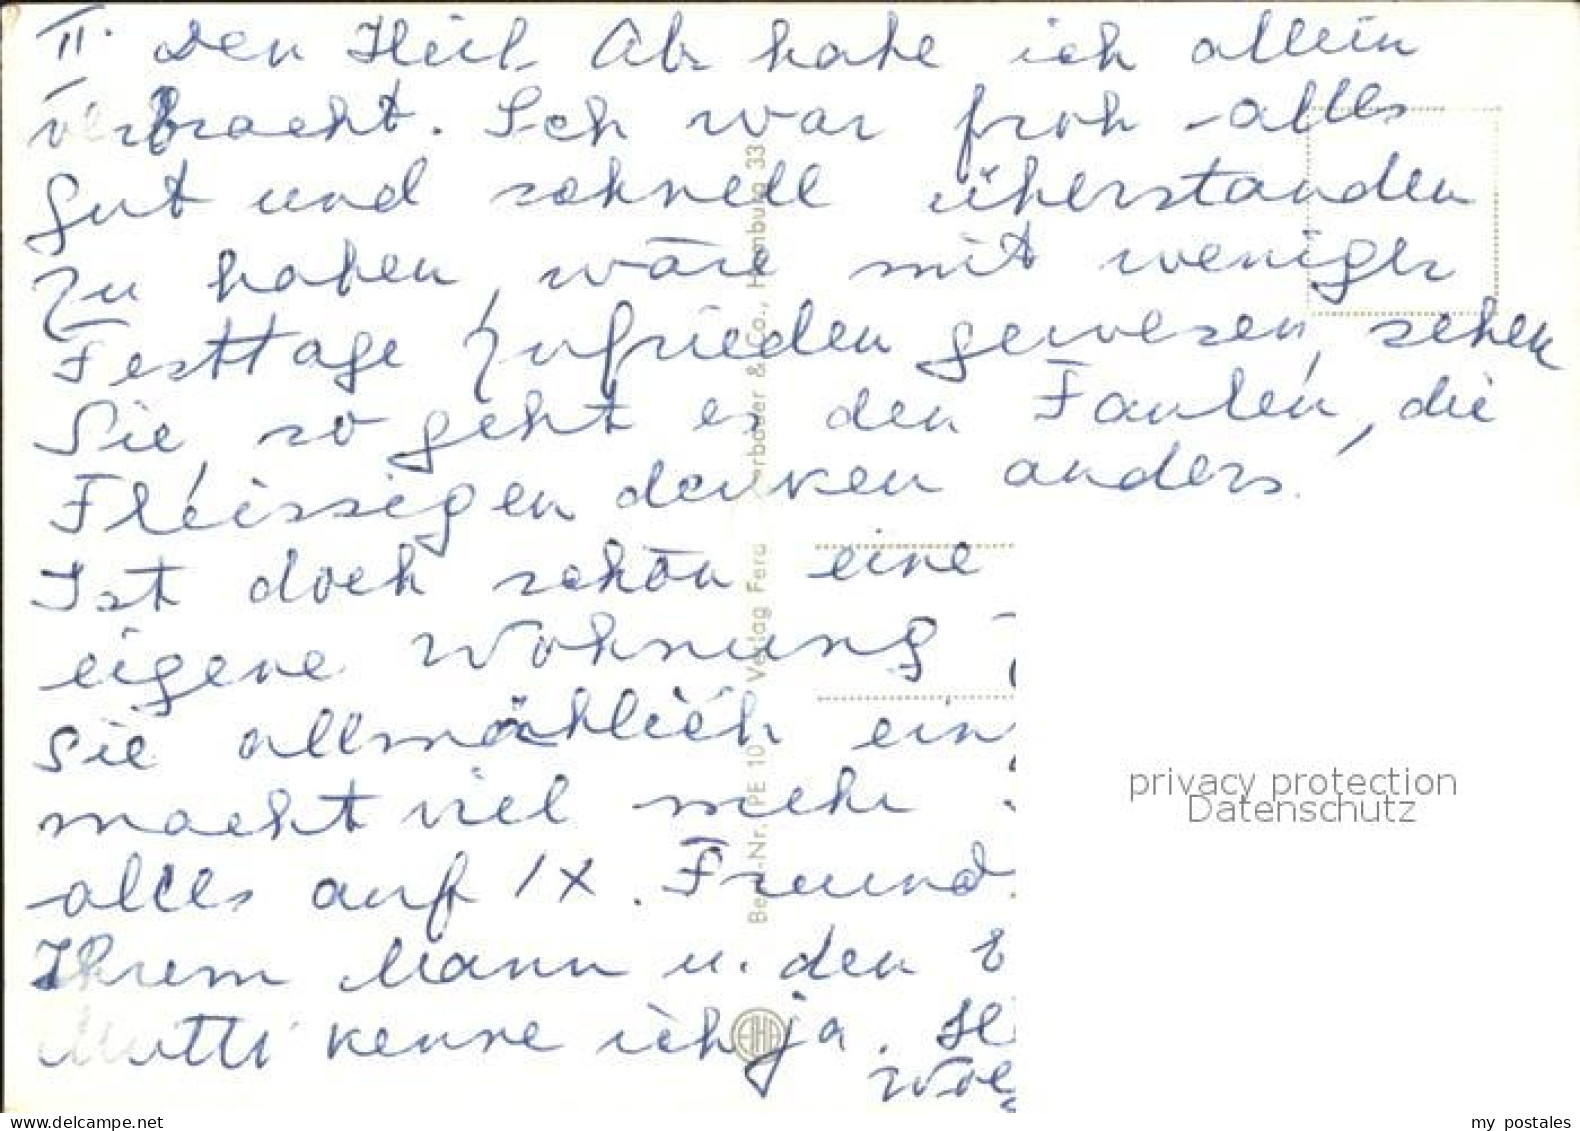 II. Den Heil. Ab. habe ich allein
verbracht. Ich war froh - alles
gut und schnell überstanden
zu haben, wäre mit weniger
Festtage zufrieden gewesen, sehen
Sie, so geht es den Faulen, die
Fleissigen denken anders.
Ist doch schön eine
eigene Wohnung
Sie allmählich ein
macht viel mehr
alles auf 1 x. Freund
Ihrem Mann u. den
Mutti kenne ich ja.
Best.-Nr. PE 10 Verlag Ferd. & Co., Hamburg 33
privacy protection
Datenschutz
www.delcampe.net
my_postales